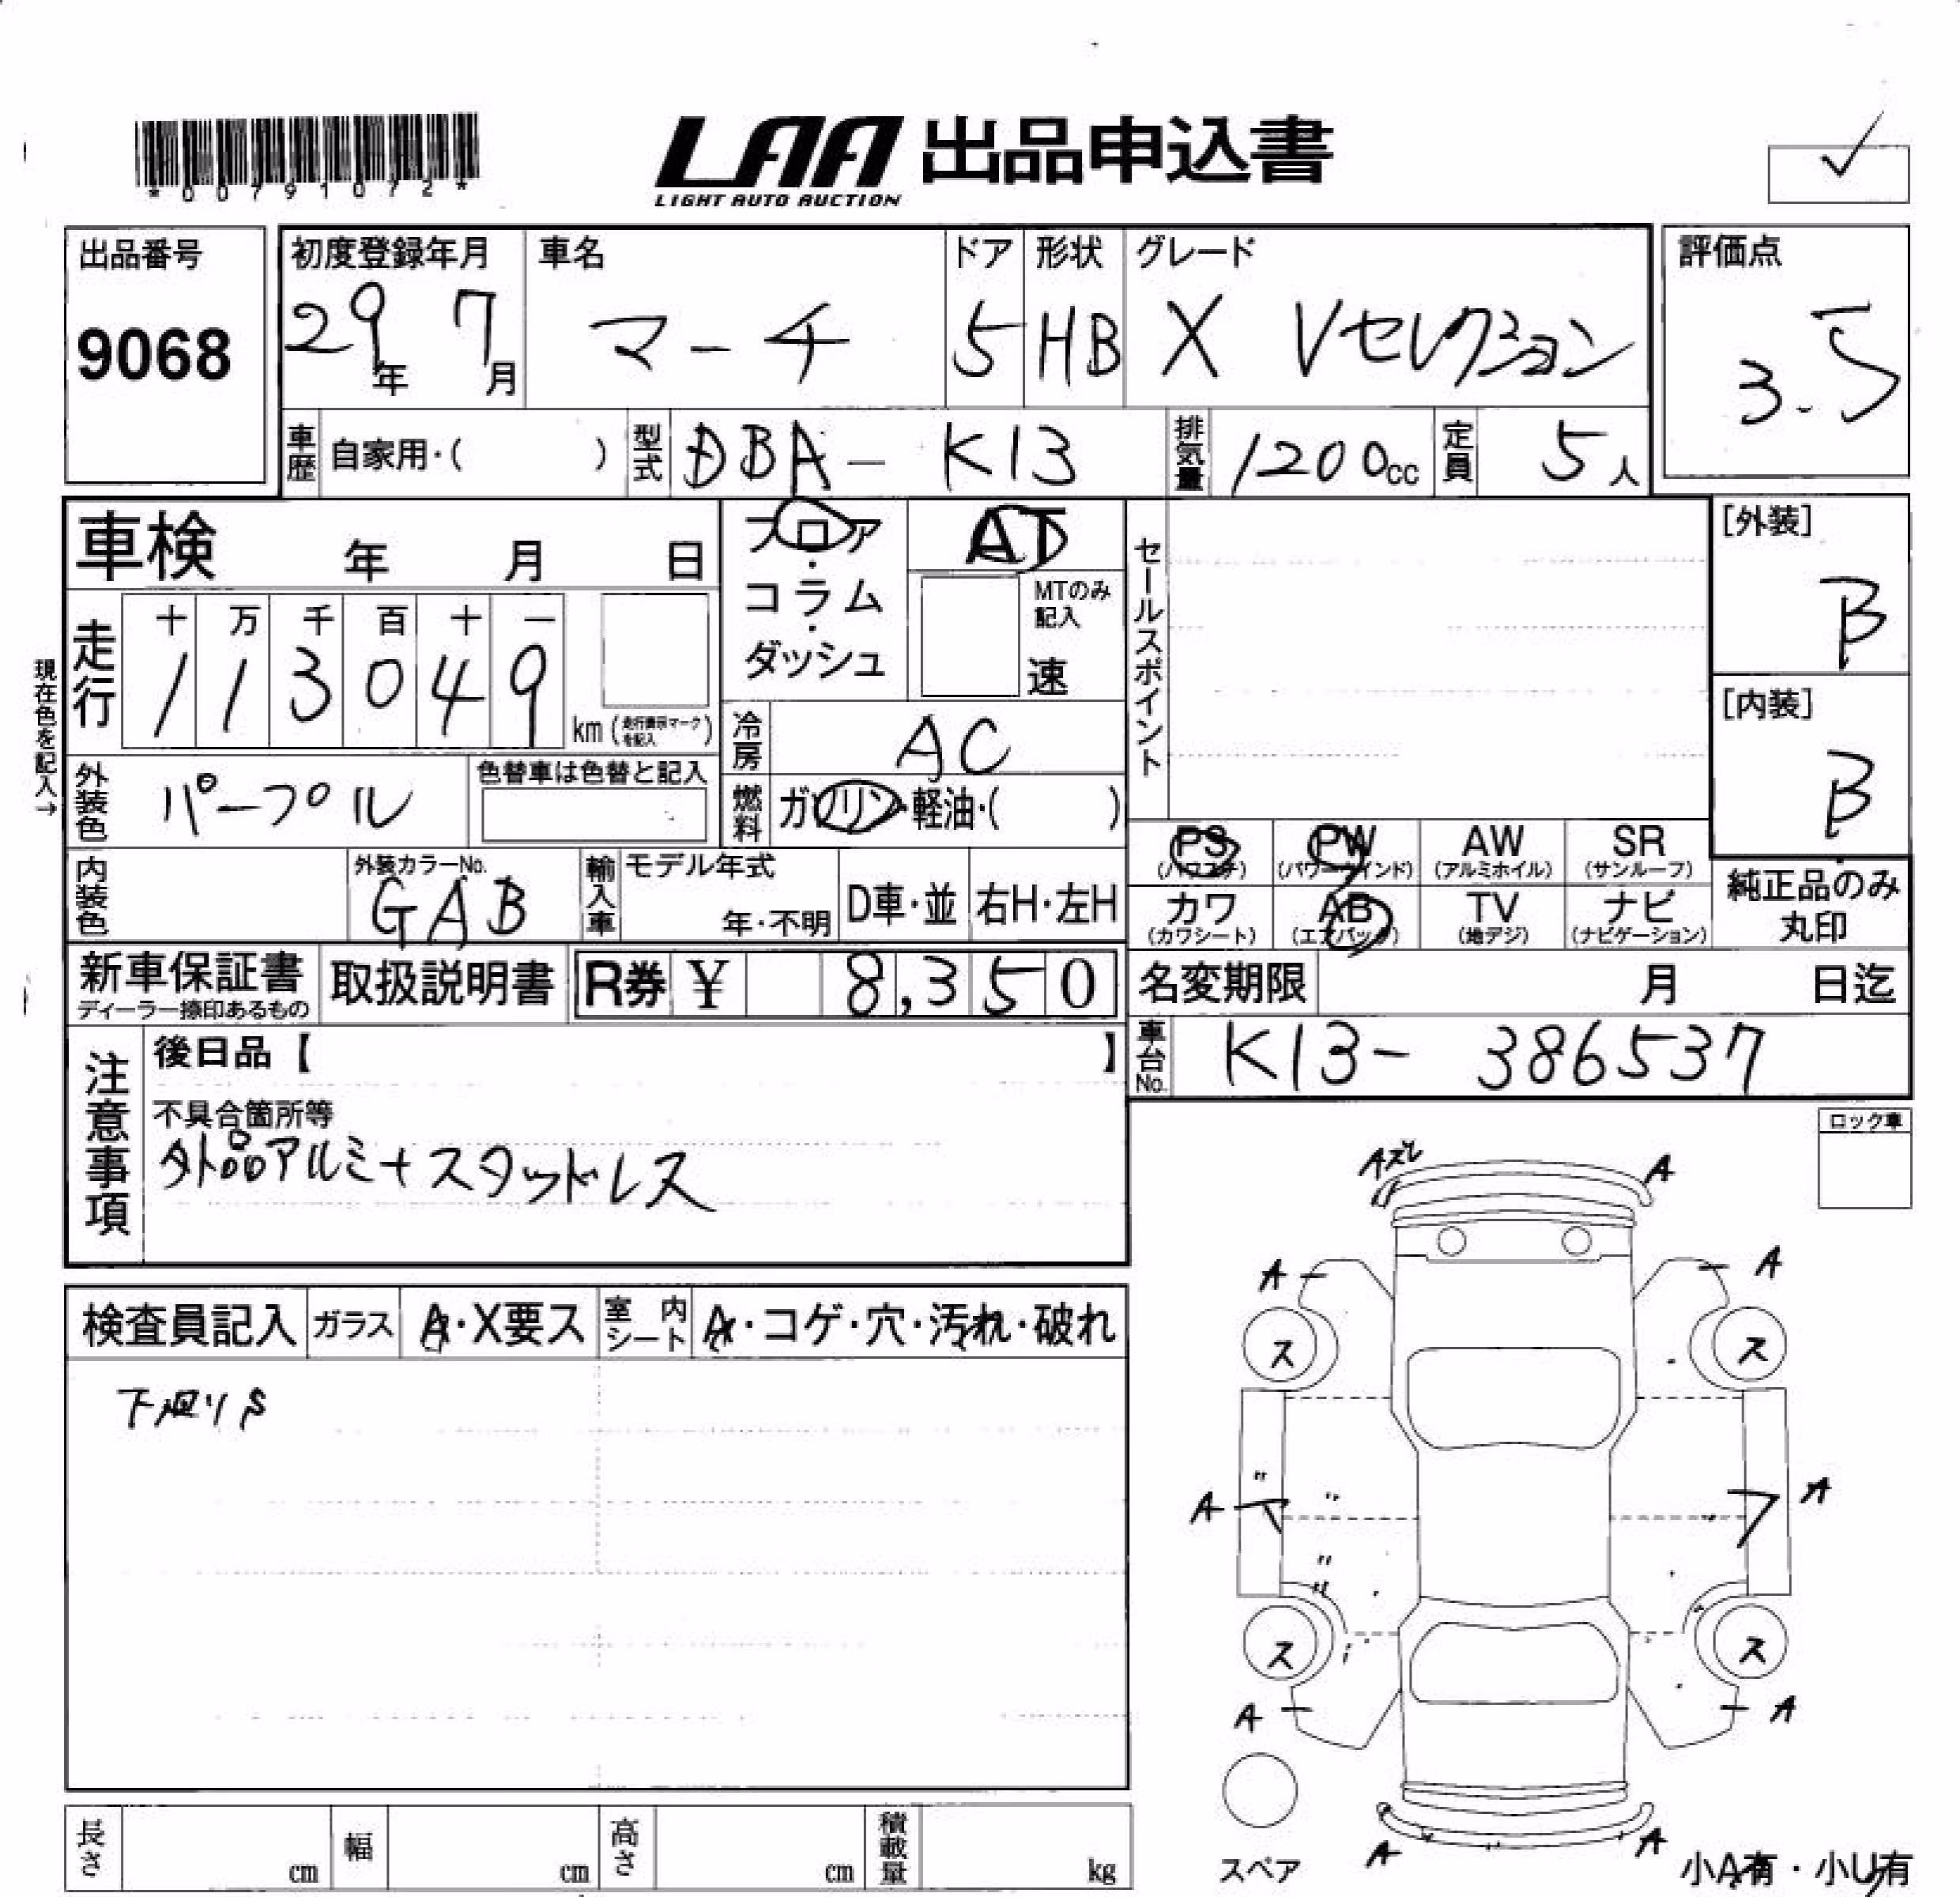 *00791072*
LAA 出品申込書
LIGHT AUTO AUCTION
出品番号
9068
初度登録年月
29年 7月
車名
マーチ
ドア
5
形状
HB
グレード
X Vセレクション
評価点
3.5
車歴 自家用・( )
型式 DBA-K13
排気量 1200cc
定員 5人
車検 年 月 日
フロア・コラム・ダッシュ
AT
MTのみ記入
速
セールスポイント
[外装]
B
[内装]
B
現在色を記入→
走行
十 万 千 百 十 一
1 1 3 0 4 9
km (走行表示マークを記入)
冷房 AC
燃料 ガソリン・軽油・( )
外装色 パープル
色替車は色替と記入
内装色
外装カラーNo.
GAB
輸入車
モデル年式
年・不明
D車・並
右H・左H
PS (パワステ)
PW (パワーウインド)
AW (アルミホイル)
SR (サンルーフ)
カワ (カワシート)
AB (エアバック)
TV (地デジ)
ナビ (ナビゲーション)
純正品のみ丸印
新車保証書
ディーラー捺印あるもの
取扱説明書
R券 ¥ 8,350
名変期限 月 日迄
車台No. K13-386537
注意事項
後日品【 】
不具合箇所等
外品アルミ+スタッドレス
ロック車
検査員記入
ガラス A・X要ス
室内シート A・コゲ・穴・汚れ・破れ
下廻りS
Aズレ
A
A
A
ス
ス
A
A
ス
ス
A
A
A
A
スペア
小A有・小U有
長さ cm
幅 cm
高さ cm
積載量 kg